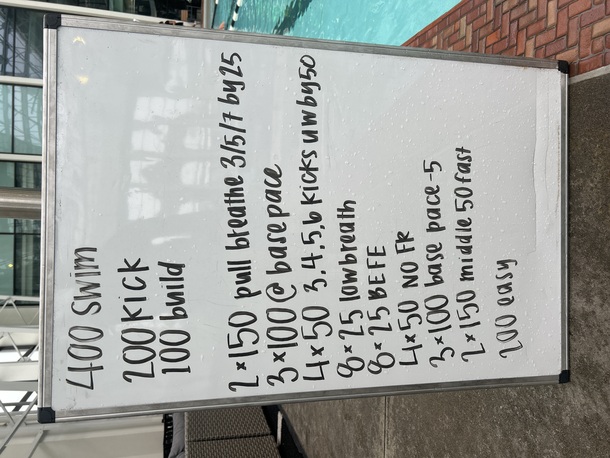 400 swim
200 kick
100 build
2x150 pull breathe 3/5/7 by 25
3x100 @ base pace
4x50 3,4,5,6 kicks uw by 50
8x25 low breath
8x25 BEFE
4x50 NO FR
3x100 base pace -5
2x150 middle 50 fast
200 easy